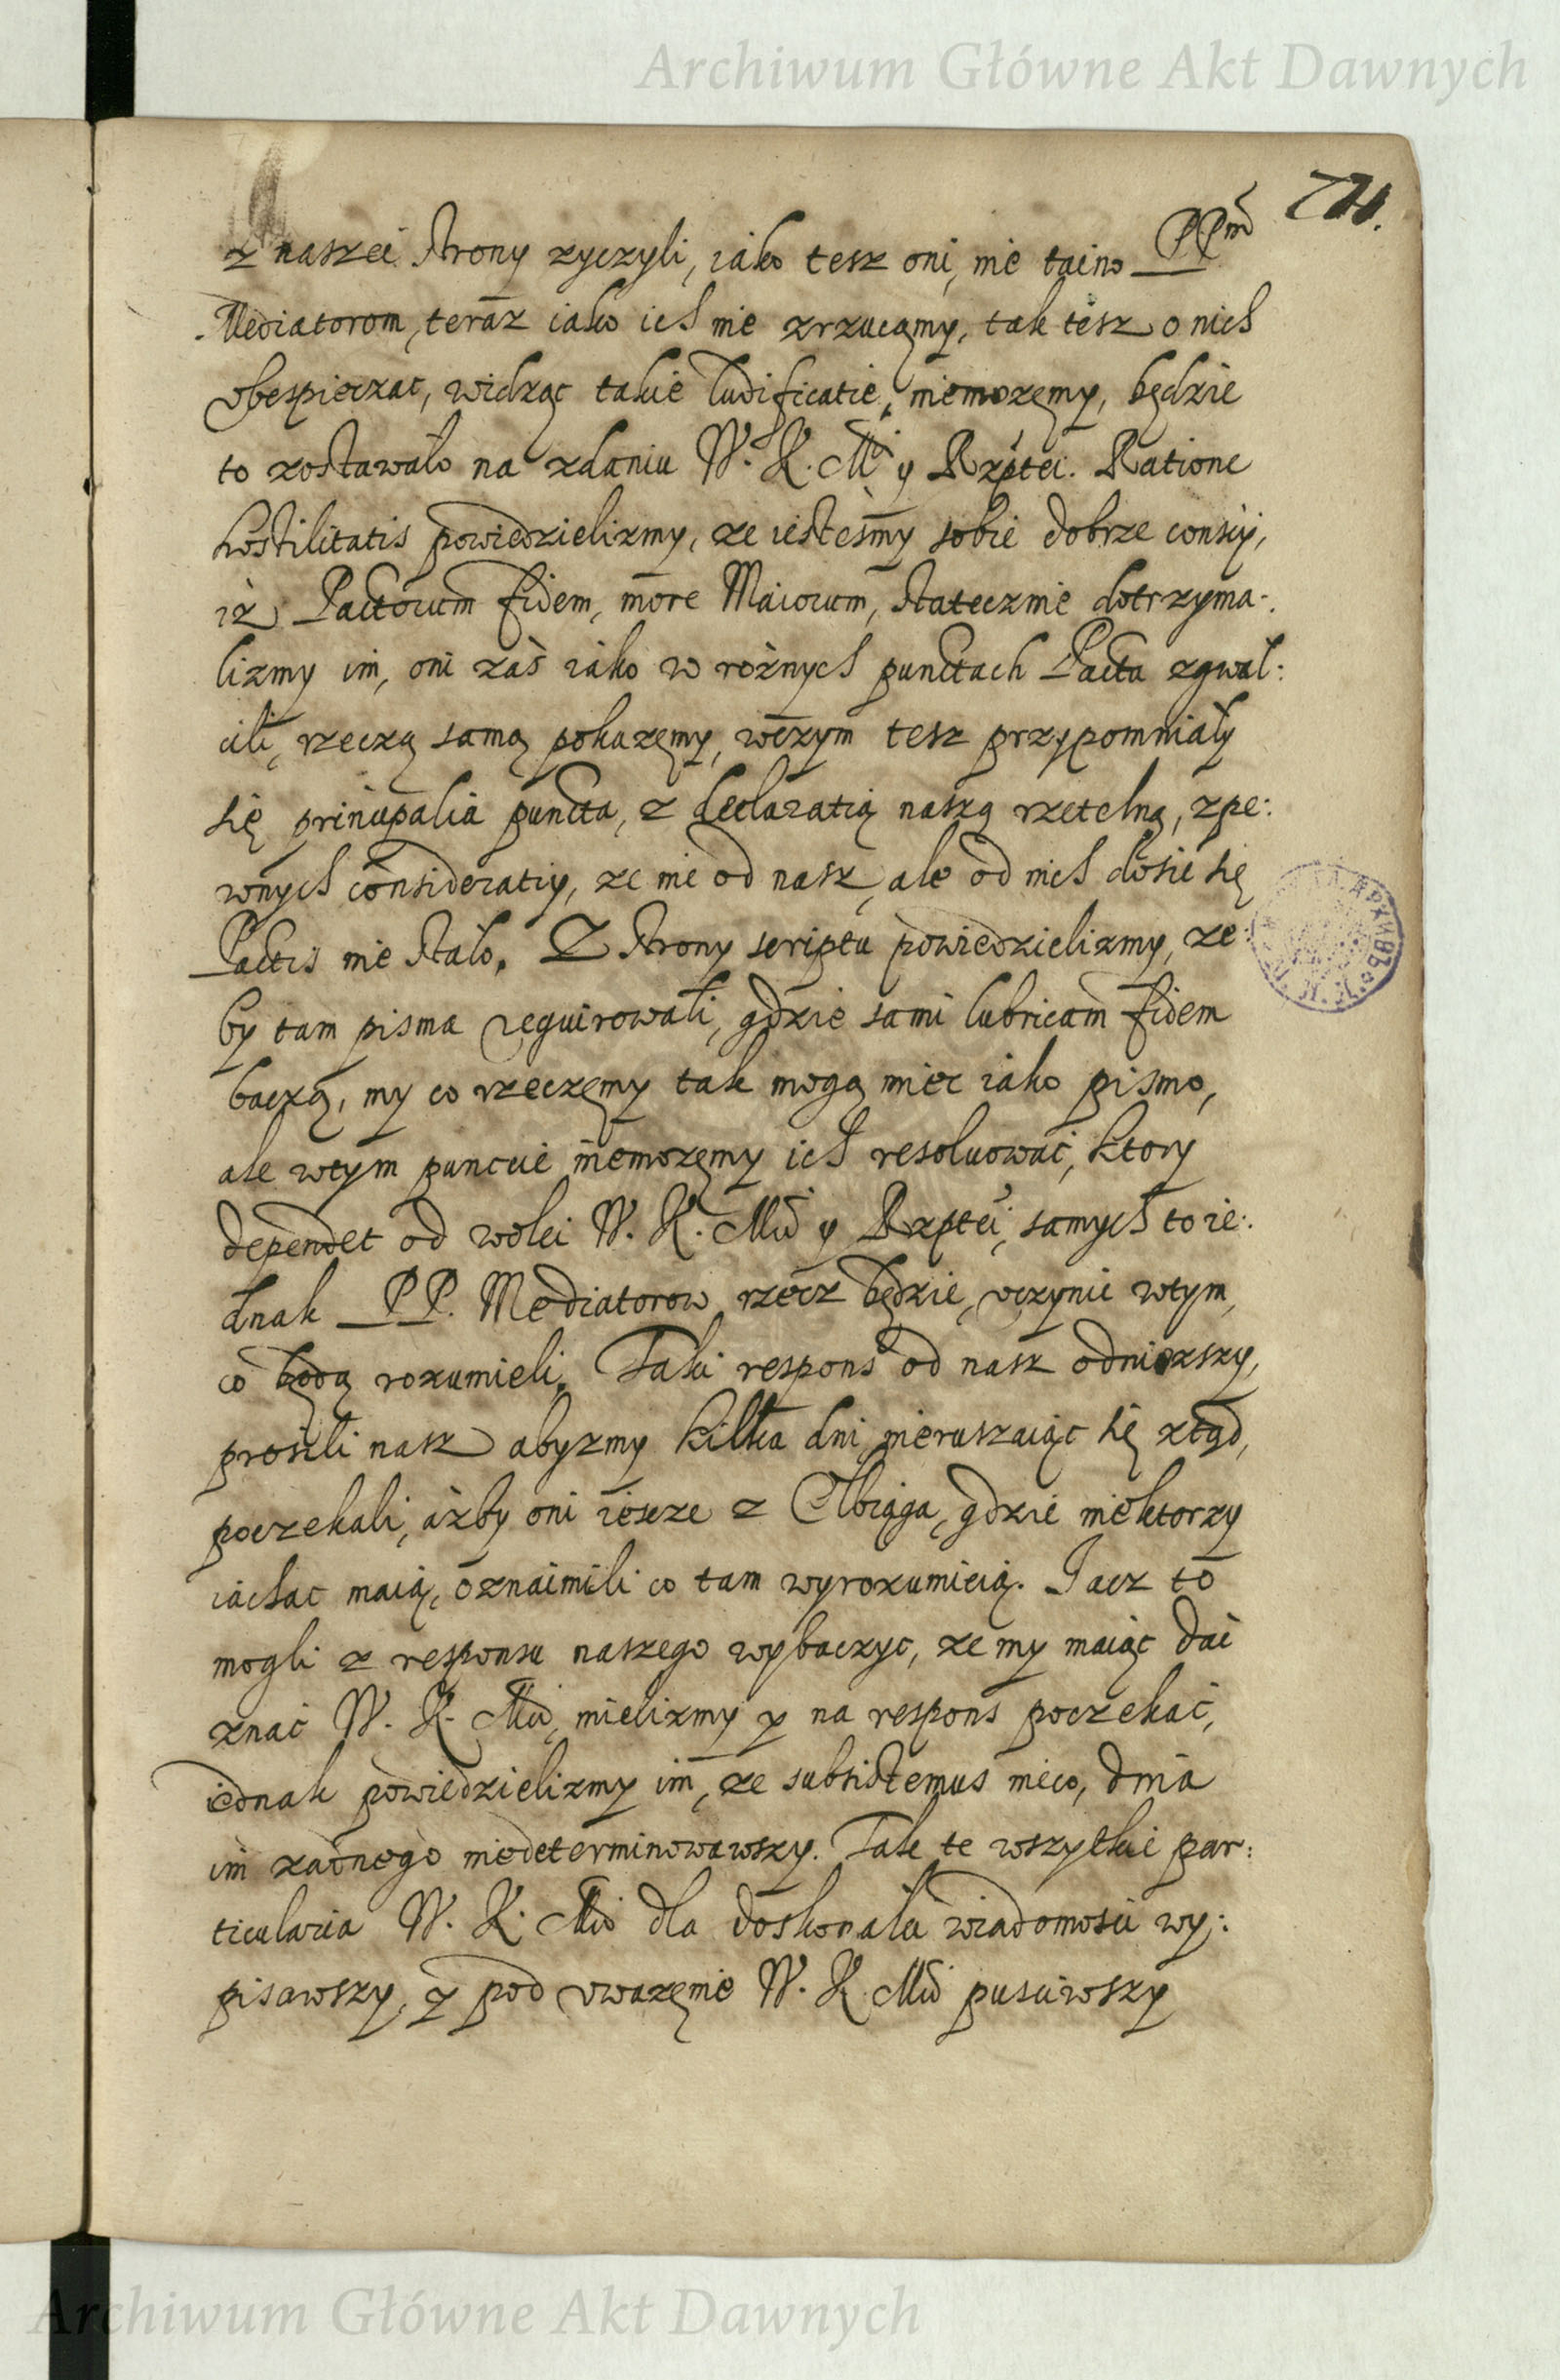 Archiwum Główne Akt Dawnych
z naszei strony zyczyli, iako tesz oni, nie taino PPm
Mediatorom, teraz iako ich nie zrzucamy, tak tesz o nich
obespieczac, widząc takie ludificatie, niemozemy, będzie
to zostawało na zdaniu W. K. Mci y Rzptei. Ratione
hostilitatis powiedzielizmy, ze iestesmy sobie dobrze conscij,
iz Pactorum fidem, more Maiorum, statecznie dotrzyma:
lizmy im, oni zas iako w roznych punctach Pacta zgwał:
cili, rzeczą samą pokazemy, wczym tesz przypomniały
się principalia puncta, z declaratią naszą rzetelną, zpe:
wnych consideratiy, ze nie od nasz, ale od nich dosic się
Pactis nie stało. Z strony scriptu powiedzielizmy, ze:
by tam pisma requirowali, gdzie sami lubricam fidem
baczą, my co rzeczemy tak mogą miec iako pismo,
ale wtym puncie niemozemy ich resoluowac, ktory
dependet od wolei W. K. Mci y Rzptei, samych to ie:
dnak PP. Mediatorow rzecz będzie, uczynic wtym,
co będą rozumieli. Taki respons od nasz odniozszy,
prosili nasz abyzmy kilka dni nieruszaiąc się ztąd,
poczekali, azby oni iescze z Elbiąga, gdzie niektorzy
iachac maią, oznaimili co tam wyrozumieią. I acz to
mogli z responsu naszego wybaczyc, ze my maiąc dac
znac W. K. Mci, mielizmy y na respons poczekac,
iednak powiedzielizmy im, ze subsistemus nieco, dnia
im zadnego niedeterminowawszy. Tak te wszytkie par:
ticularia W. K. Mci dla doskonałei wiadomosci wy:
pisawszy, y pod uwazenie W. K. Mci pusciwszy
Archiwum Główne Akt Dawnych